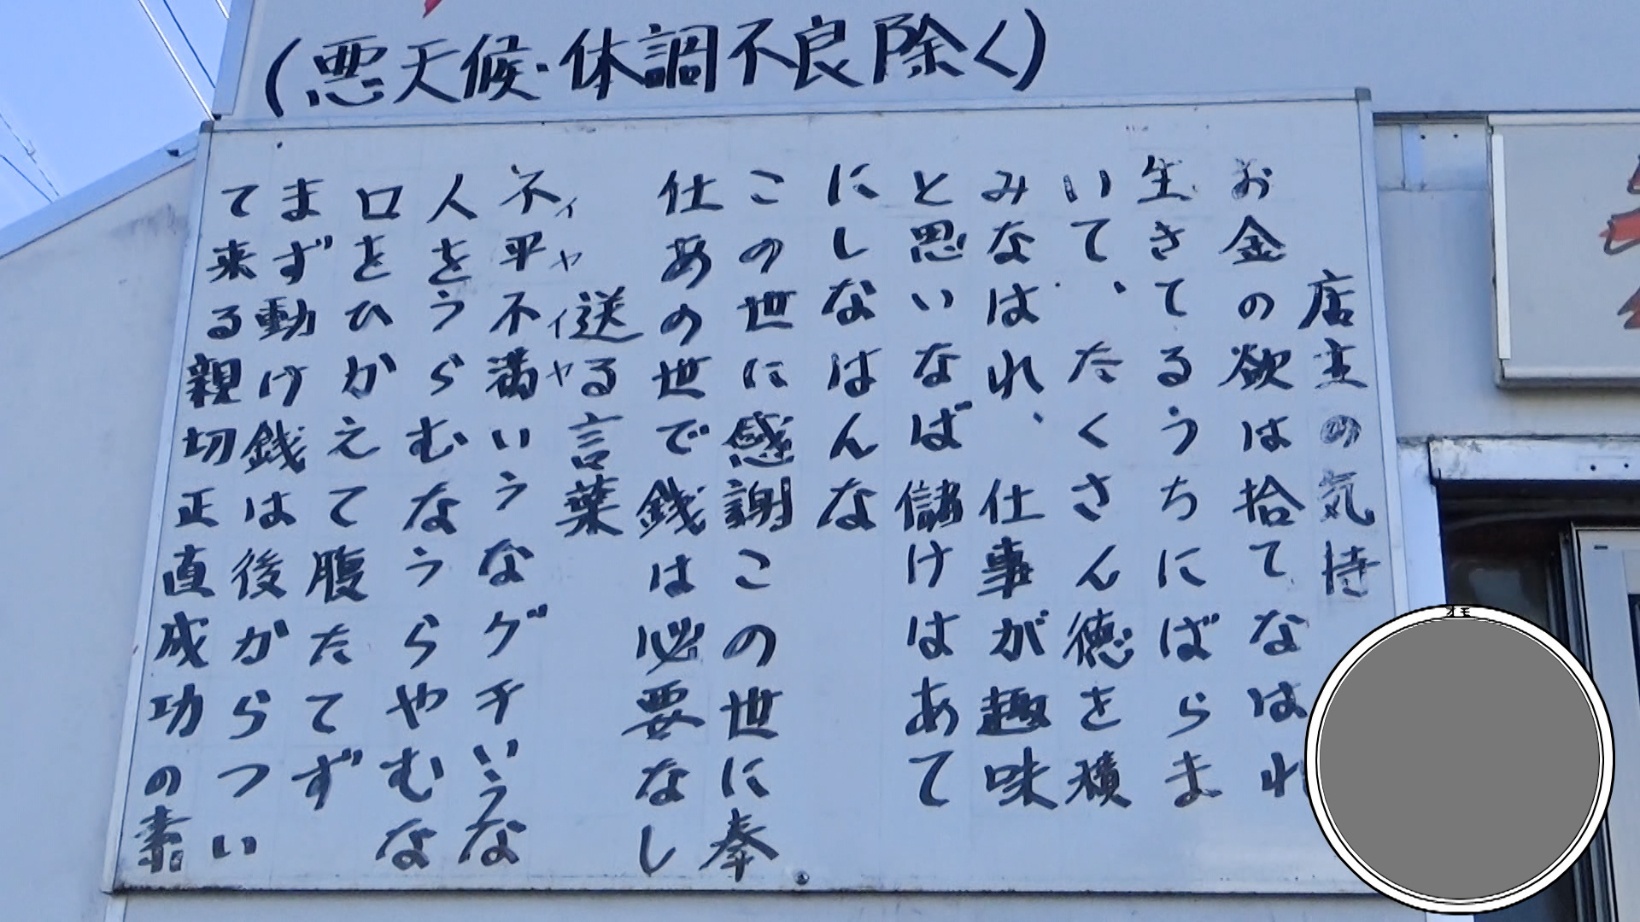 (悪天候・体調不良除く)
店主の気持
お金の欲は拾てなはれ
生きてるうちにばらま
いて、たくさん徳を積
みなはれ、仕事が趣味
と思いなば儲けはあて
にしなはんな
この世に感謝この世に奉
仕あの世で銭は必要なし
送る言葉
イヤイヤ
不平不満いうなグチいうな
人をうらむなうらやむな
口をひかえて腹たてず
まず動け銭は後からつい
て来る親切正直成功の素
オモ